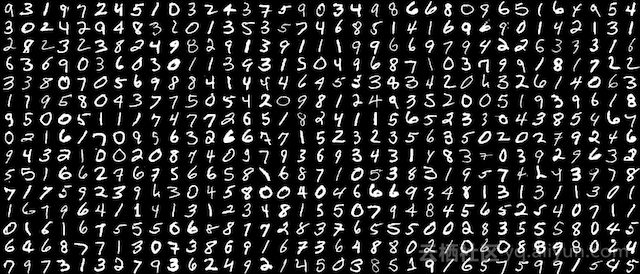 9 3 1 9 7 2 4 5 1 0 3 2 4 3 7 5 9 0 3 4 9 8 6 6 8 0 9 6 5 1 6 4 9 5 4
3 0 2 4 2 9 4 8 3 2 0 1 3 5 3 5 7 4 6 8 5 1 4 1 6 9 6 9 0 1 4 2 1 3 1
2 8 2 3 2 3 8 2 4 9 8 2 9 1 3 9 1 1 1 9 9 6 6 9 7 9 4 2 2 6 3 3 3 1 6
6 3 6 9 0 3 6 0 3 0 1 1 3 9 3 1 5 0 4 9 6 8 7 1 0 3 7 9 9 1 8 1 7 2 2
3 3 8 0 7 0 5 6 9 8 8 4 1 4 4 4 6 9 5 3 3 8 3 4 2 0 6 3 2 6 1 4 0 6 3
1 1 9 5 8 0 4 3 7 7 5 0 5 4 2 0 9 8 1 2 4 9 3 5 2 0 0 5 1 9 3 9 6 1 8
9 5 0 0 5 1 1 1 7 4 7 7 2 6 5 1 8 2 4 1 1 5 6 5 2 3 3 0 4 3 8 5 4 6 7
0 2 1 6 1 7 0 9 5 6 3 2 6 6 7 7 1 5 2 3 2 3 5 6 3 5 0 2 0 2 7 9 2 4 6
9 4 3 2 1 0 0 2 0 8 7 4 0 9 7 9 3 6 9 3 4 3 1 4 8 3 7 0 3 9 2 9 6 3 2
5 5 1 6 6 2 7 6 7 5 6 6 5 8 1 6 8 7 1 0 5 3 8 3 1 9 5 7 4 2 4 3 9 7 8
7 1 7 5 9 2 3 9 6 3 0 4 5 8 0 0 4 0 4 6 6 6 9 3 4 8 1 3 1 3 1 1 3 0 1
1 6 7 9 6 4 1 1 4 1 3 1 2 3 4 8 1 5 5 0 7 9 4 8 4 5 6 5 2 5 4 0 7 1
0 1 6 1 6 7 5 5 5 0 6 8 8 1 7 2 8 3 7 6 5 5 5 0 0 2 8 3 5 5 5 8 0 4 5
6 4 6 8 7 7 1 3 0 7 3 8 6 9 1 6 7 3 6 4 8 8 0
7 9 7 3 1 3 2 7 9 3 6 2 4 9 2 1 4 5 0 3 8 5 1
云栖社区 yq.aliyun.com